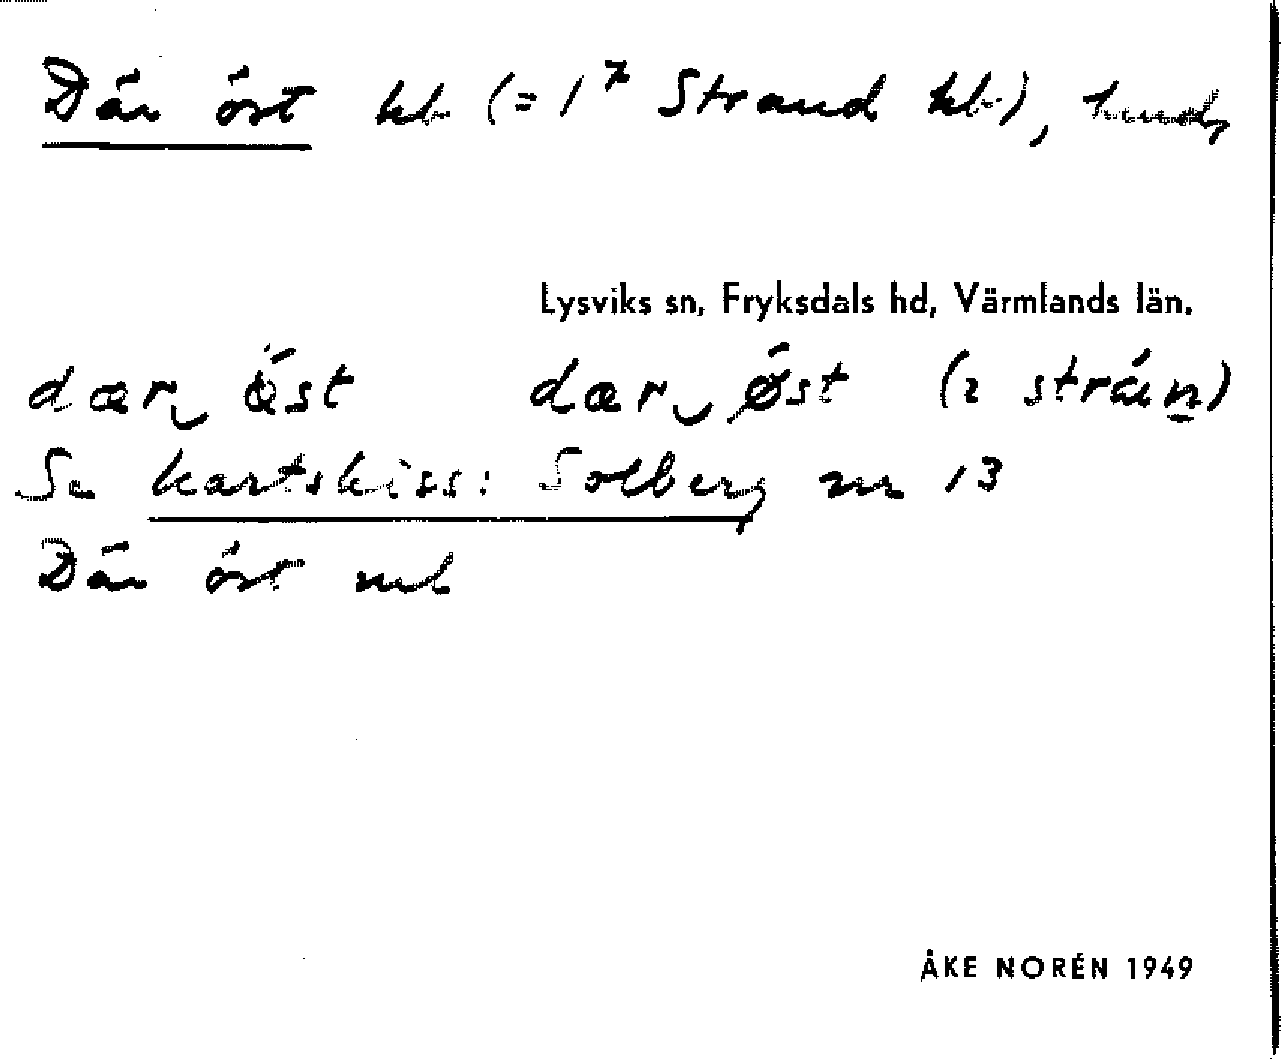 Där öst hb (= 1⁷ Strand hb),
Lysviks sn, Fryksdals hd, Värmlands län.
dær öst dær øst (i strán)
Se kartskiss: Solberg nr 13
Där öst
ÅKE NORÉN 1949